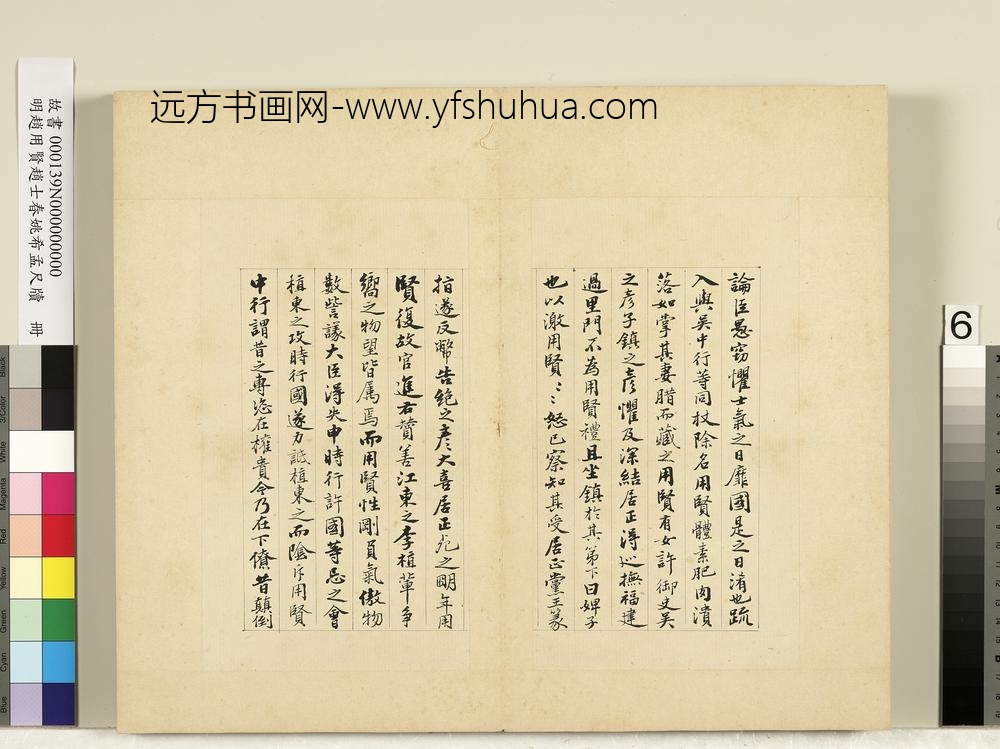 远方书画网-www.yfshuhua.com
故書 000139N000000000
明趙用賢趙士春姚希孟尺牘 冊
6
論臣愚竊懼士氣之日靡國是之日淆也疏
入與吳中行等同杖除名用賢體素肥肉潰
落如掌其妻腊而藏之用賢有女許御史吳
之彥子鎮之彥懼及深結居正得巡撫福建
過里門不為用賢禮且坐鎮於其弟下曰婢子
也以激用賢〻〻怒已察知其受居正黨王篆
指遂反幣告絕之彥大喜居正死之明年用
賢復故官進右贊善江東之李植輩爭
嚮之物望皆屬焉而用賢性剛負氣傲物
數訾議大臣得失申時行許國等忌之會
植東之攻時行國遂力詆植東之而陰斥用賢
中行謂昔之專恣在權貴今乃在下僚昔顛倒
Black
3/Color
White
Magenta
Red
Yellow
Green
Cyan
Blue